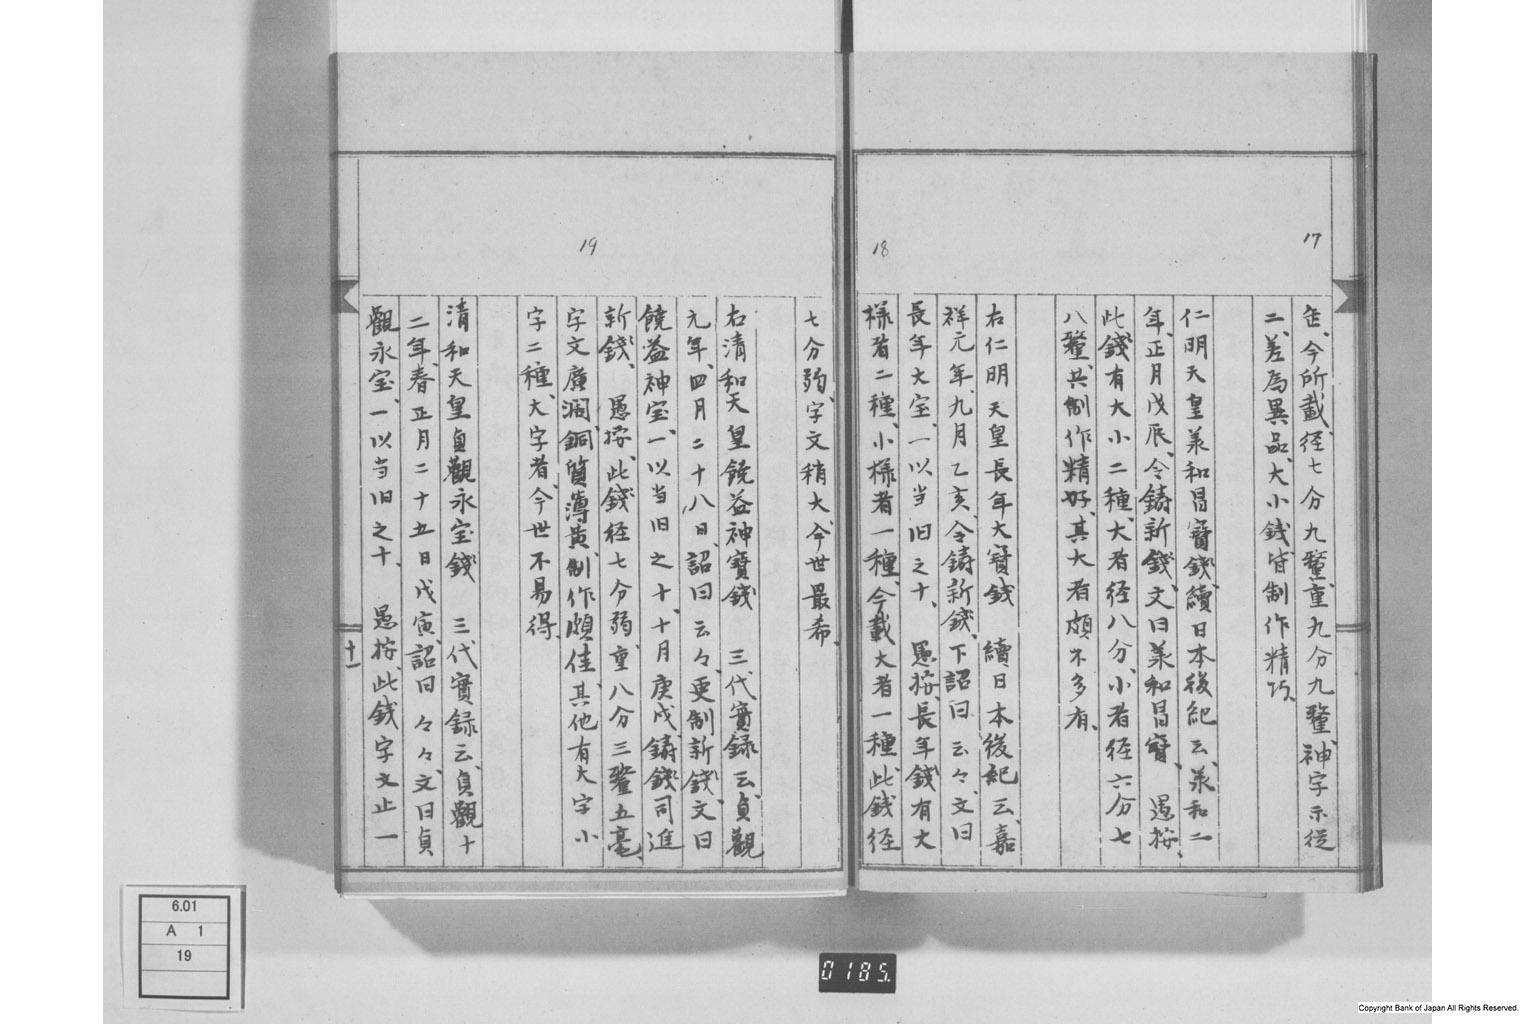 17
18
19
今所載、径七分九釐、重九分九釐、神字示従
二、差為異品、大小錢皆制作精巧、
仁明天皇美和昌寶錢、續日本後紀云、美和二
年、正月戊辰、令鋳新錢、文曰美和昌寶、愚按、
此錢有大小二種、大者径八分、小者径六分七
八釐、共制作精好、其大者頗不多有、
右仁明天皇長年大寶錢 續日本後紀云、嘉
祥元年、九月乙亥、令鋳新錢、下詔曰云々、文曰
長年大宝、一以当旧之十、愚按、長年錢有大
様者二種、小様者一種、今載大者一種、此錢径
七分弱、字文稍大、今世最希、
右清和天皇饒益神寶錢 三代實録云、貞觀
元年、四月二十八日、詔曰云々、更制新錢、文曰
饒益神宝、一以当旧之十、十月庚戌、鋳錢司進
新錢、愚按、此錢径七分弱、重八分三釐五毫、
字文廣濶、銅質薄黄、制作頗佳、其他有大字小
字二種、大字者、今世不易得、
清和天皇貞觀永宝錢 三代實録云、貞觀十
二年、春正月二十五日戊寅、詔曰々々、文曰貞
觀永宝、一以当旧之十、愚按、此錢字文止一
十一
6.01
A 1
19
0185.
Copyright Bank of Japan All Rights Reserved.